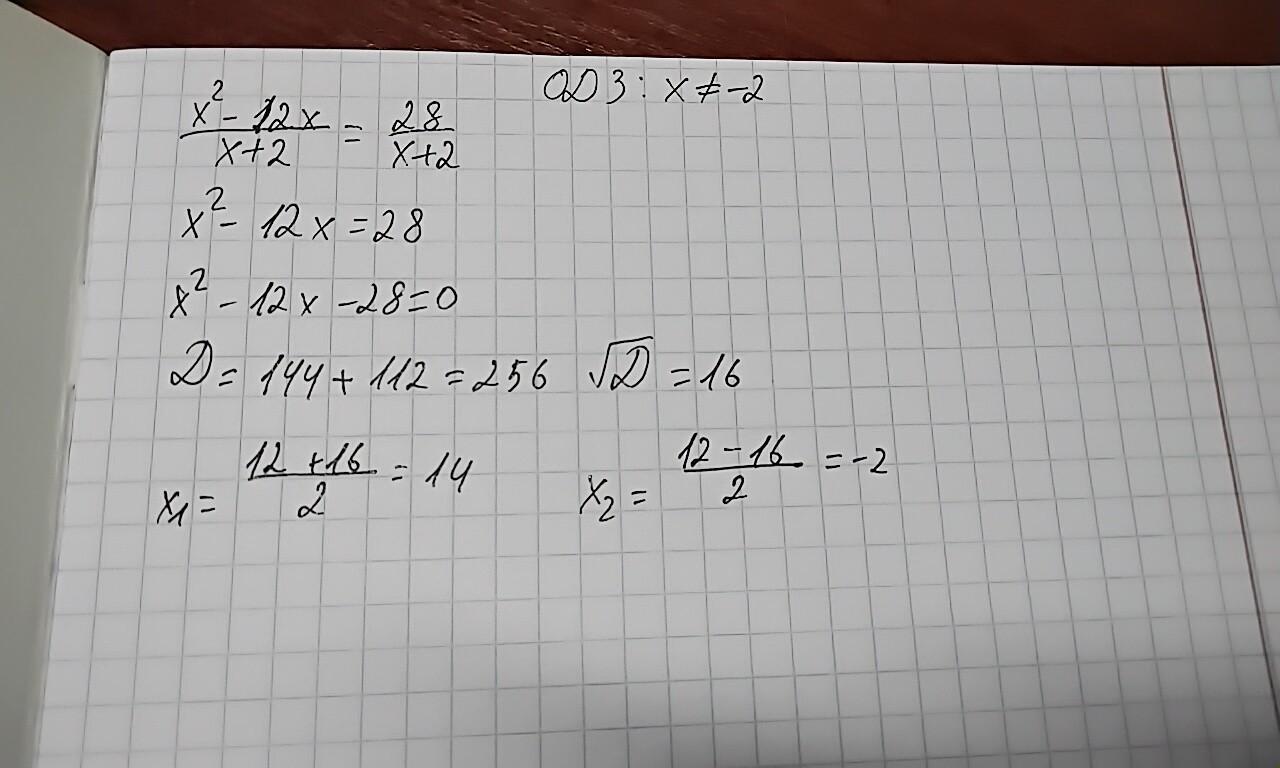 (x² - 12x)/(x+2) = 28/(x+2)   ОДЗ: x ≠ -2
x² - 12x = 28
x² - 12x - 28 = 0
D = 144 + 112 = 256   √D = 16
x₁ = (12 + 16)/2 = 14   x₂ = (12 - 16)/2 = -2